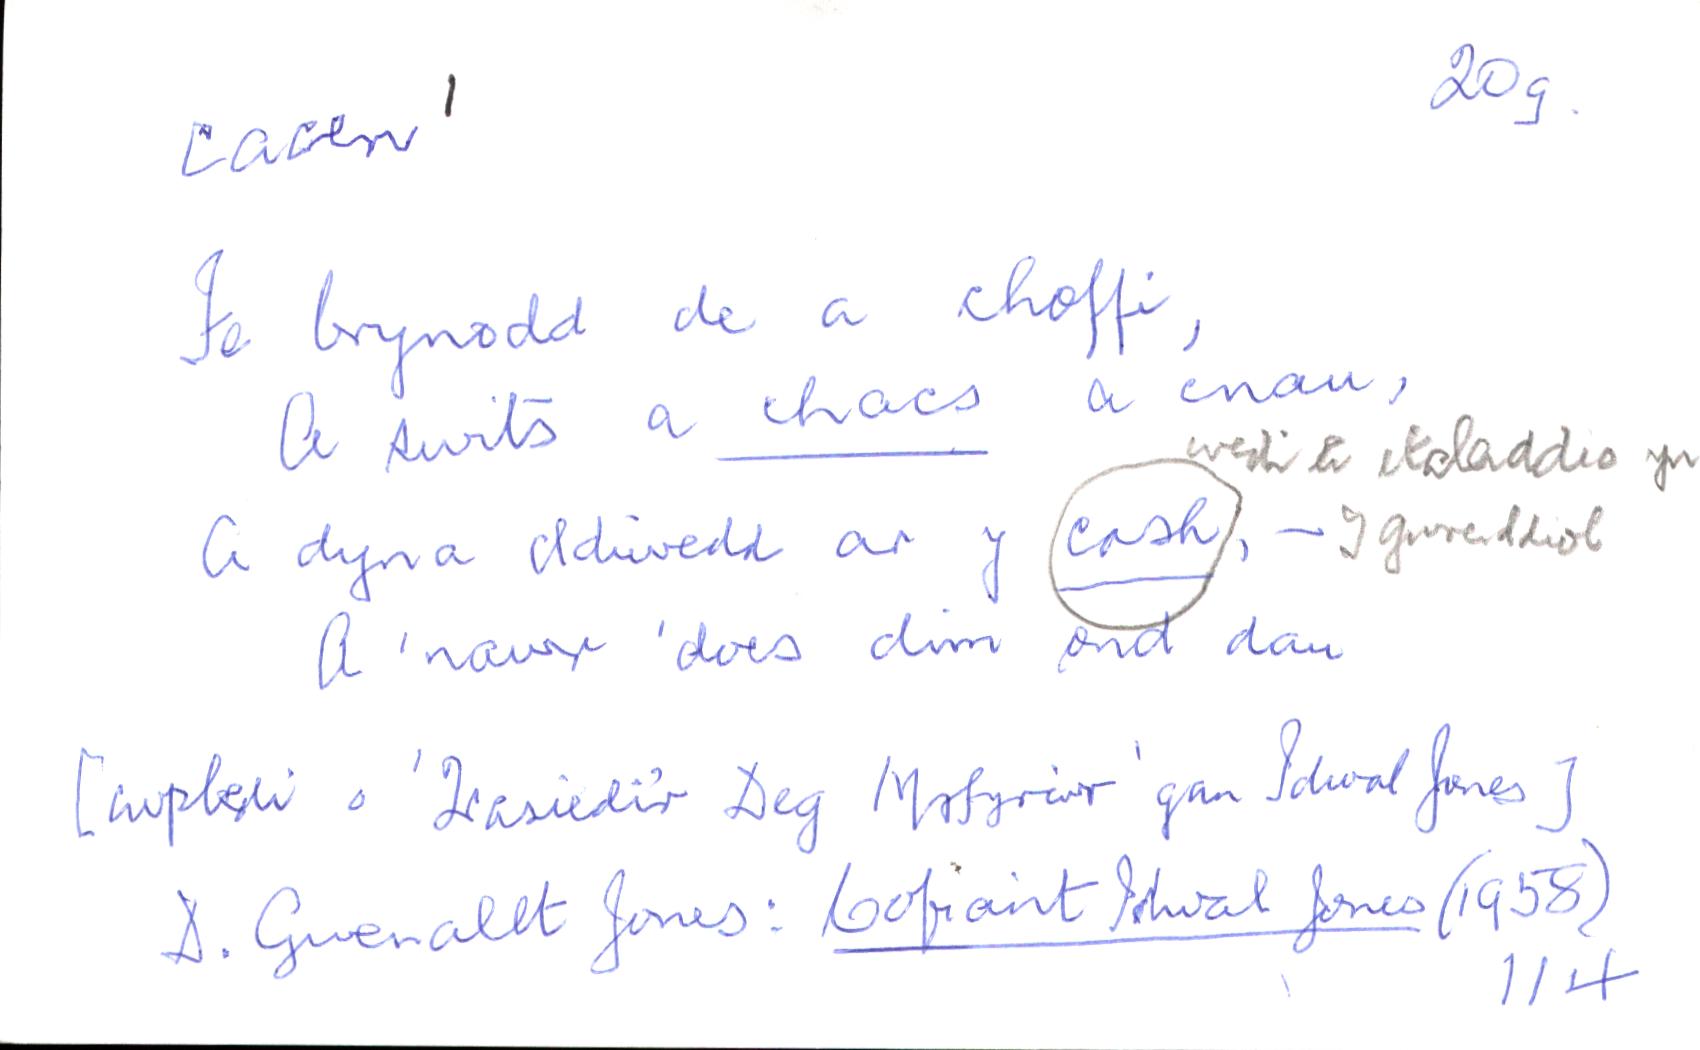 20g.
cacen¹
Fe brynodd de a choffi,
A swits a chacs a cnau,
wedi ei italaddio yn
A dyna ddiwedd ar y cash, – y gwreiddiol
A 'nawr 'does dim ond dau
[cwpledi o 'Trasiedi'r Deg Myfyriwr' gan Idwal Jones]
D. Gwenallt Jones: Cofiant Idwal Jones (1958)
114